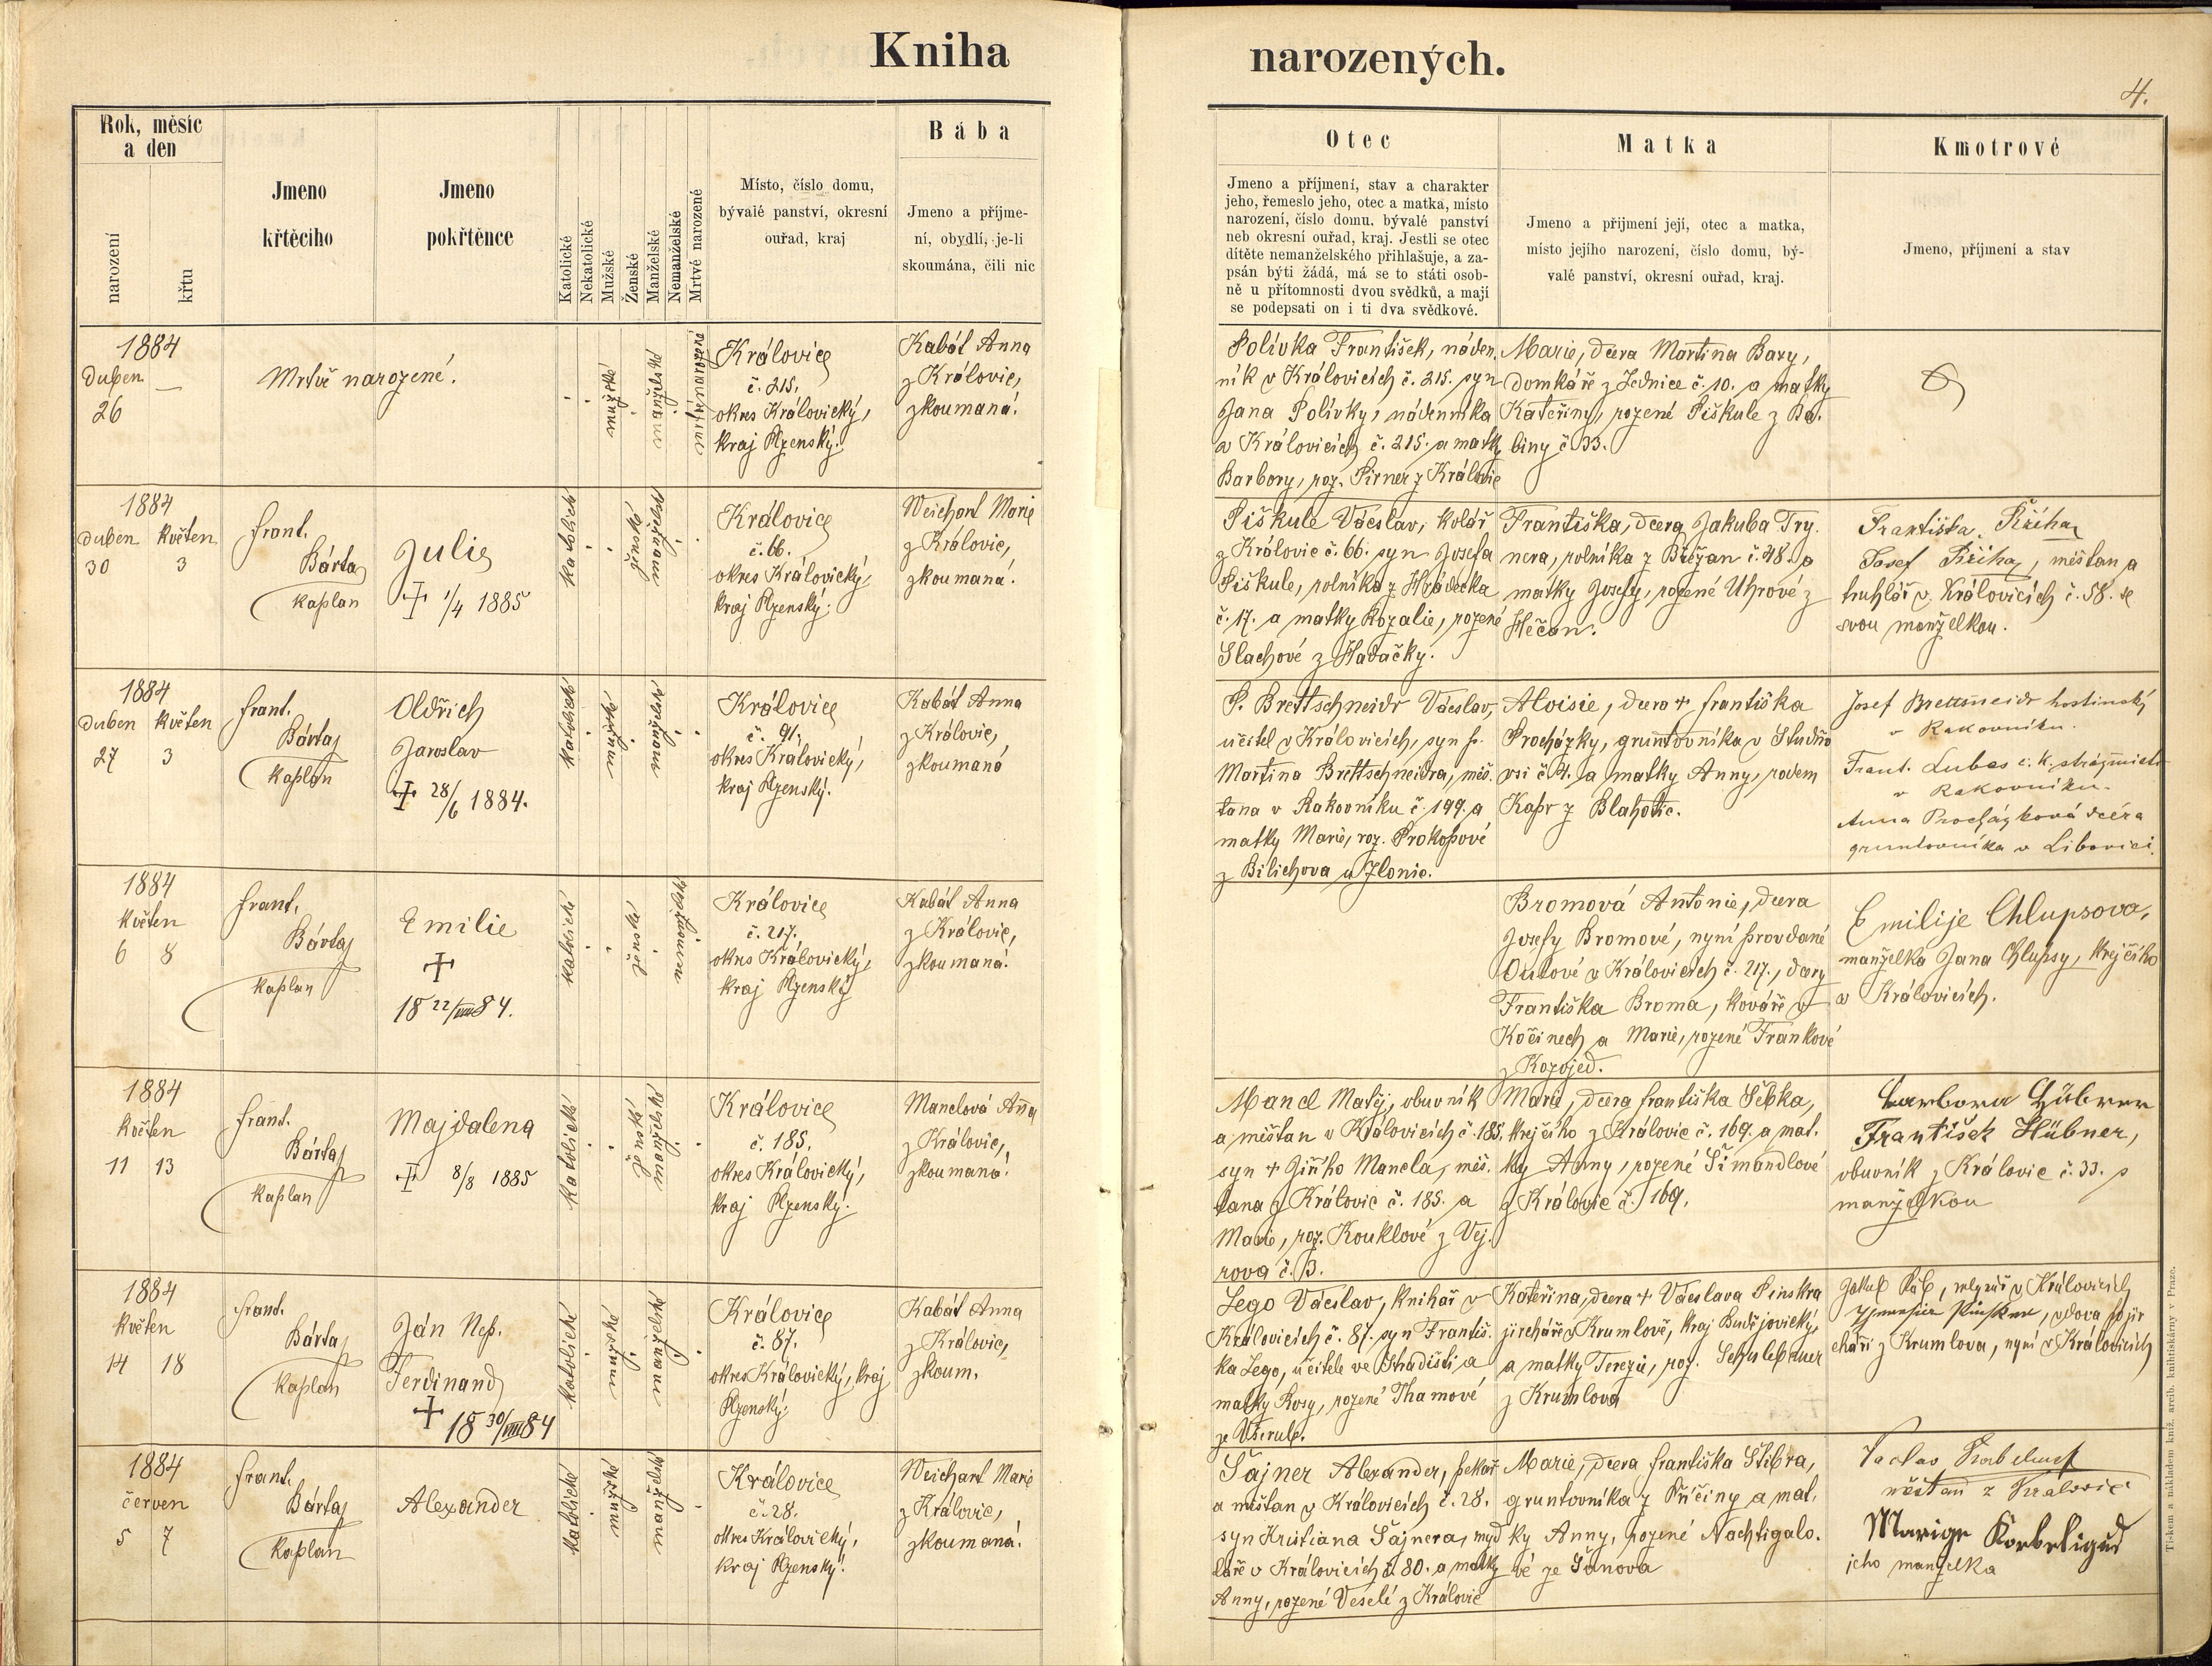 Kniha narozených.
4.
Rok, měsíc
a den
narození
křtu
Jmeno
křtěcího
Jmeno
pokřtěnce
Katolické
Nekatolické
Mužské
Ženské
Manželské
Nemanželské
Mrtvé narozené
Místo, číslo domu,
bývalé panství, okresní
ouřad, kraj
Bába
Jmeno a příjme-
ní, obydlí, je-li
skoumána, čili nic
Otec
Jmeno a příjmení, stav a charakter
jeho, řemeslo jeho, otec a matka, místo
narození, číslo domu, bývalé panství
neb okresní ouřad, kraj. Jestli se otec
dítěte nemanželského přihlašuje, a za-
psán býti žádá, má se to státi osob-
ně u přítomnosti dvou svědků, a mají
se podepsati on i ti dva svědkové.
Matka
Jmeno a přijmení její, otec a matka,
místo jejího narození, číslo domu, bý-
valé panství, okresní ouřad, kraj.
Kmotrové
Jmeno, příjmení a stav
1884
Duben —
26
Mrtvě narozené.
mužské
manželské
mrtvě narozené
Královice
č. 215.
okres Královický,
kraj Plzenský.
Kabát Anna
z Královic,
zkoumaná.
Polívka František, náden-
ník v Královicích č. 215. syn
Jana Polívky, nádenníka
v Královicích č. 215. a matky
Barbory, roz. Pirner z Královic
Marie, dcera Martina Bary,
domkáře z Lednice č. 10. a matky
Kateřiny, rozené Piškule z Ba-
biny č. 33.
1884
Duben Květen
30 3
Frant.
Bárta
kaplan
Julie
† 1/4 1885
katolické
ženské
manželské
Královice
č. 66.
okres Královický,
kraj Plzenský.
Weichart Marie
z Královic,
zkoumaná.
Piškule Václav, kolář
z Královic č. 66. syn Josefa
Piškule, rolníka z Hrádecka
č. 17. a matky Rozalie, rozené
Slachové z Hadačky.
Františka, dcera Jakuba Try-
nera, rolníka z Břežan č. 48. a
matky Josefy, rozené Uhrové z
Hečan.
Františka Říha
Josef Říha, měšťan a
truhlář v Královicích č. 58. se
svou manželkou.
1884
Duben Květen
27 3
Frant.
Bárta
kaplan
Oldřich
Jaroslav
† 28/6 1884.
katolické
mužské
manželské
Královice
č. 91.
okres Královický,
kraj Plzenský.
Kabát Anna
z Královic,
zkoumaná
P. Brettschneidr Václav,
učitel v Královicích, syn p.
Martina Brettschneidra, měš-
ťana v Rakovníku č. 199. a
matky Marie, roz. Prokopové
z Bilichova u Zlonic.
Aloisie, dcera † Františka
Procházky, gruntovníka v Studňo-
vsi č. 4. a matky Anny, rodem
Kapr z Blahotic.
Josef Brettšneidr hostinský
v Rakovníku.
Frant. Lubas c. k. strážmistr
v Rakovníku.
Anna Procházková dcéra
gruntovníka v Libovici.
1884
Květen
6 8
Frant.
Bárta
kaplan
Emilie
†
18 22/VIII 84.
katolické
ženské
nemanželské
Královice
č. 217.
okres Královický,
kraj Plzenský
Kabát Anna
z Královic,
zkoumaná.
Bromová Antonie, dcera
Josefy Bromové, nyní provdané
v Královicích č. 217., dcery
Františka Broma, kováře v
Kočinech a Marie, rozené Frankové
z Kozojed.
Emilije Chlupsova,
manželka Jana Chlupsy, krejčího
v Královicích.
1884
Květen
11 13
Frant.
Bárta
kaplan
Majdalena
† 8/8 1885
katolické
ženské
manželské
Královice
č. 185.
okres Královický,
kraj Plzenský.
Manclová Anna
z Královic,
zkoumaná.
Mancl Matěj, obuvník
a měšťan v Královicích č. 185.
syn † Jiřího Mancla, měš-
ťana z Královic č. 185. a
Marie, roz. Kouklové z Vej-
rova č. 3.
Marie, dcera Františka Šebka,
krejčího z Královic č. 169. a mat-
ky Anny, rozené Šimandlové
z Královic č. 169.
Barbora Hübner
František Hübner,
obuvník z Královic č. 33. s
manželkou
1884
Květen
14 18
Frant.
Bárta
kaplan
Ján Nep.
Ferdinand
† 18 30/VIII 84
katolické
mužské
manželské
Královice
č. 87.
okres Královický, kraj
Plzenský.
Kabát Anna
z Královic,
zkoum.
Lego Václav, knihař v
Královicích č. 87. syn Františ-
ka Lego, učitele ve Hradišti a
matky Rosy, rozené Thamové
ze Všerub.
Kateřina, dcera † Václava Pinskra
jircháře v Krumlově, kraj Budějovický,
a matky Terezie, roz.
z Krumlova
Jakub Ráb, mlynář v Královicích
Pinsker, vdova po jir-
cháři z Krumlova, nyní v Královicích
1884
červen
5 7
Frant.
Bárta
kaplan
Alexander
katolické
mužské
manželské
Královice
č. 28.
okres Královický,
kraj Plzenský.
Weichart Marie
z Královic,
zkoumaná.
Šajner Alexander, pekař
a měšťan v Královicích č. 28.
syn Kristiana Šajnera, myd-
láře v Královicích č. 80. a matky
Anny, rozené Veselé z Královic
Marie, dcera Františka Štibra,
gruntovníka z Příčiny a mat-
ky Anny, rozené Nachtigalo-
vé ze Šanova
Václav
měšťan z Královic
Marige
jeho manželka
Tiskem a nákladem kníž. arcib. knihtiskárny v Praze.